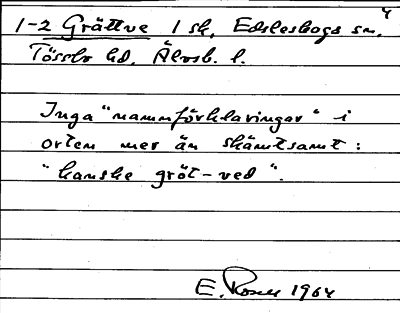 1-2 Grättve 1 sk, Edsleskogs sn.
Tössbo hd. Älvsb. l.
Inga "namnförklaringar" i
orten mer än skämtsamt:
"kanske gröt-ved".
E. Rosell 1964